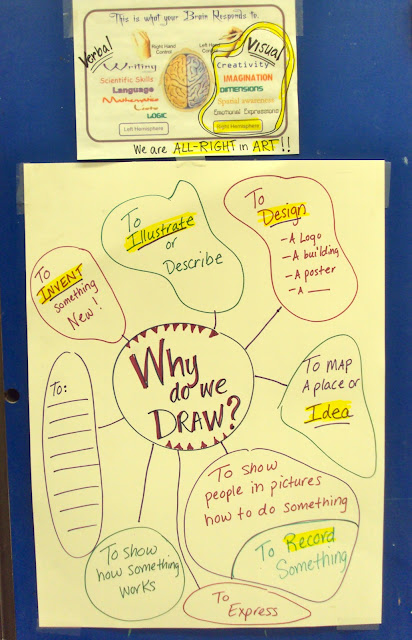 This is what your Brain Responds to.
Verbal
Right Hand
Control
Left Hand
Control
Visual
Writing
Scientific Skills
Language
Mathematics
Lists
LOGIC
Left Hemisphere
Creativity
IMAGINATION
DIMENSIONS
Spatial awareness
Emotional Expressions
Right Hemisphere
We are ALL-RIGHT in ART!!
To
Illustrate
or
Describe
To
Design
- A Logo
- A building
- A poster
- A ___
To
INVENT
something
New!
Why
do we
DRAW?
To MAP
A place or
Idea
To:
To show
people in pictures
how to do something
To Record
Something
To show
how something
works
To
Express